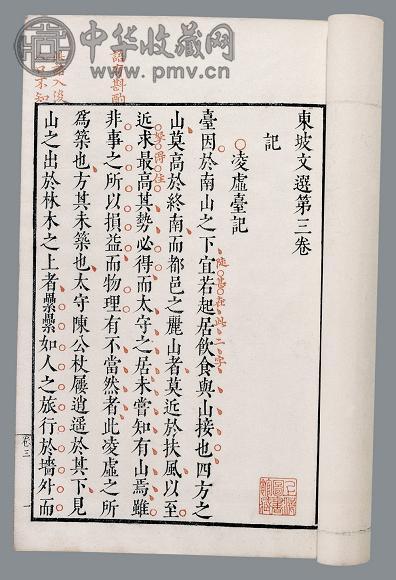 中华收藏网
www.pmv.cn
東坡文選第三卷
記
凌虛臺記
臺因於南山之下宜若起居飲食與山接也四方之
山莫高於終南而都邑之麗山者莫近於扶風以至
近求最高其勢必得而太守之居未嘗知有山焉雖
非事之所以損益而物理有不當然者此凌虛之所
爲築也方其未築也太守陳公杖屨逍遙於其下見
山之出於林木之上者纍纍如人之旅行於墻外而
在此二字
語有斟酌
不知
卷三